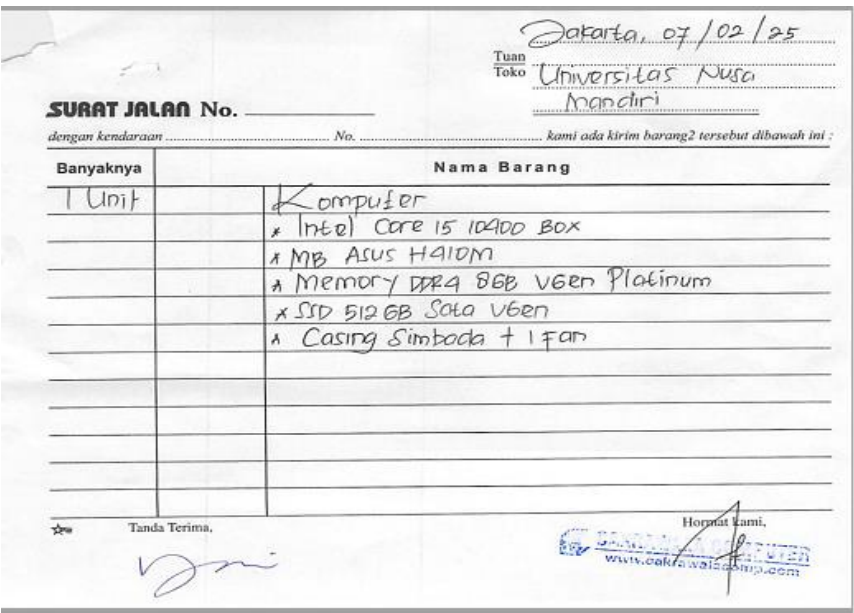 Jakarta, 07/02/25
Tuan
Toko Universitas Nusa
Mandiri
SURAT JALAN No.
dengan kendaraan No. kami ada kirim barang2 tersebut dibawah ini :
Banyaknya Nama Barang
1 Unit Komputer
* Intel Core i5 10400 Box
* MB Asus H410M
* Memory DDR4 8GB VGen Platinum
* SSD 512 GB Sata VGen
* Casing Simbada + 1 Fan
Tanda Terima, Hormat kami,
CAKRAWALA COMPUTER
www.cakrawalacomp.com